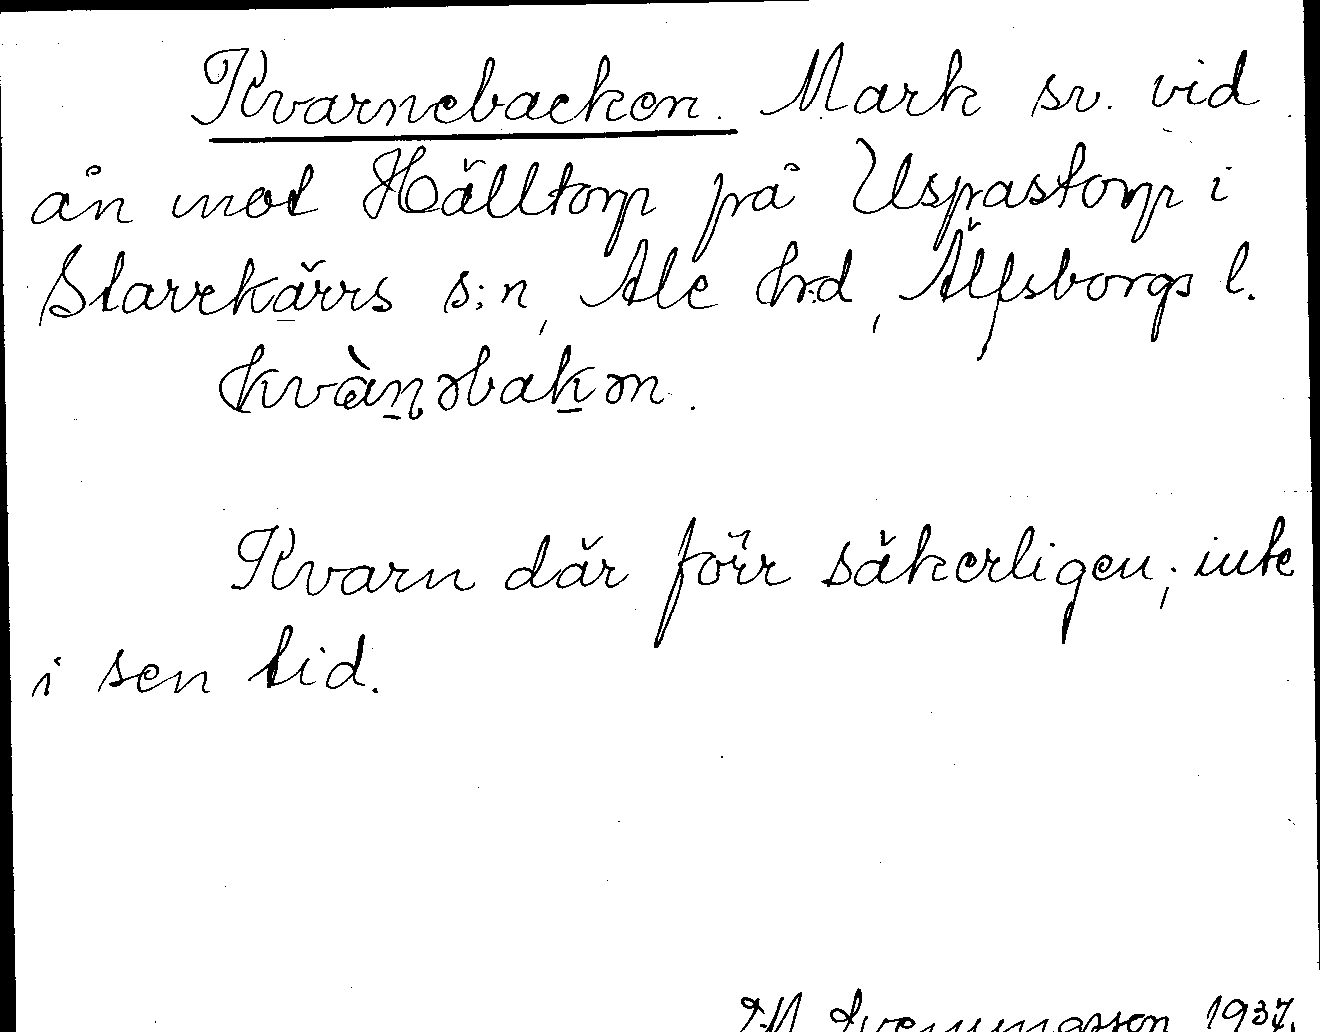 Kvarnebacken. Mark sv. vid
ån mot Hälltorp på Uspastorp i
Starrkärrs s:n, Ale hrd, Älfsborgs l.
kvàɳəbakən.
Kvarn där förr säkerligen; inte
i sen tid.
1937.